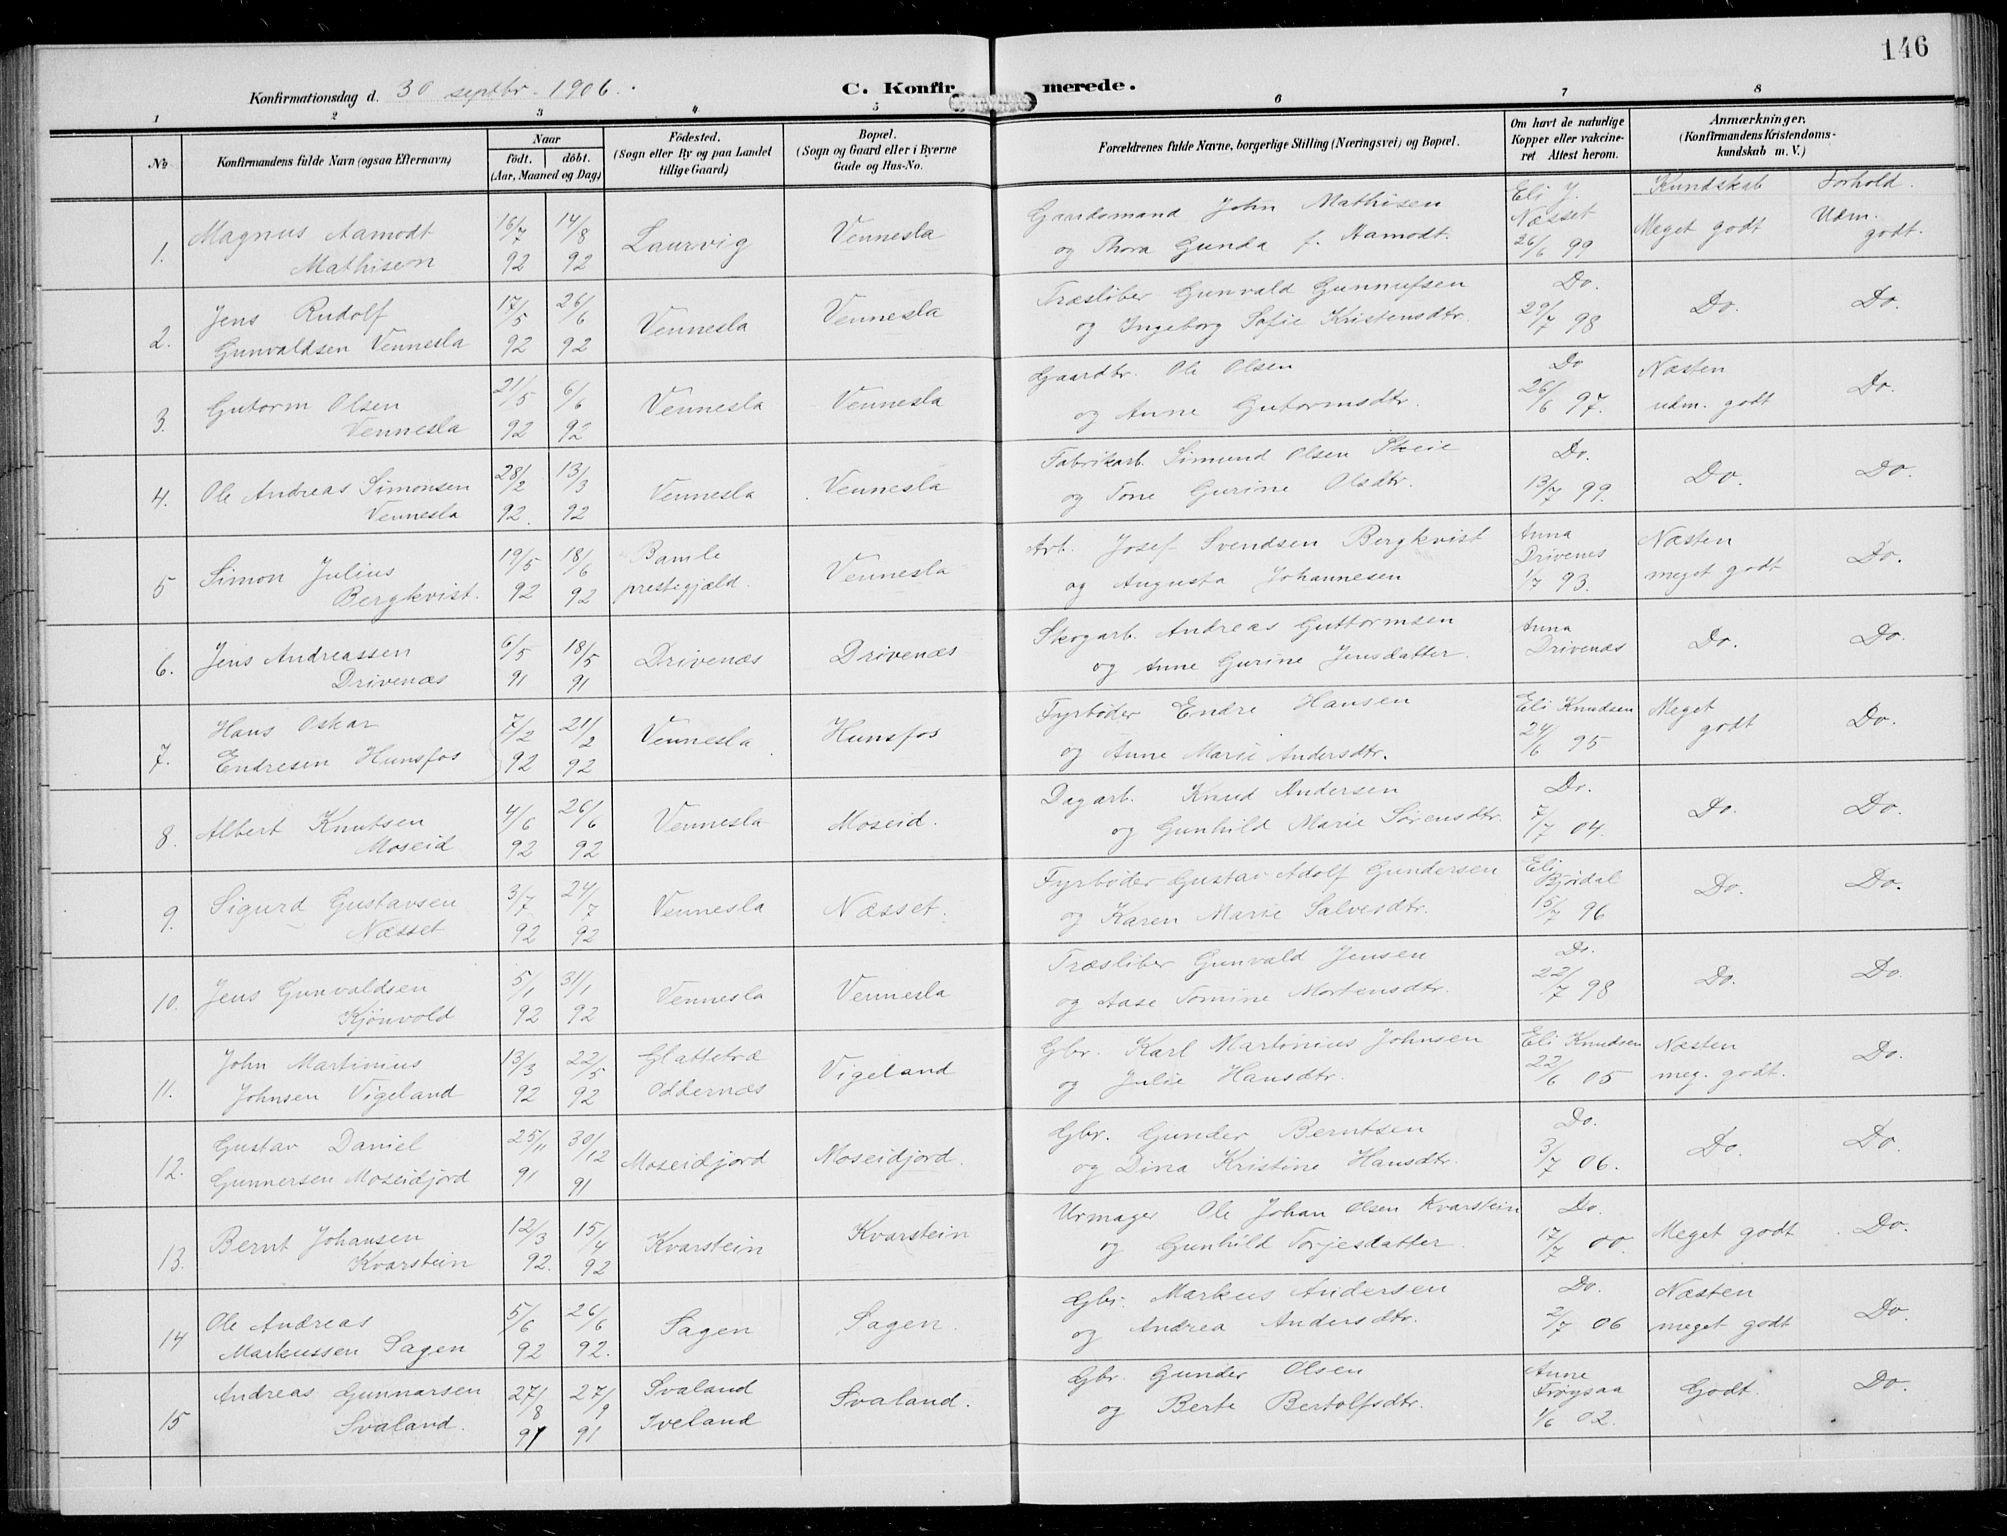 146
Konfirmationsdag d. 30 septbr. 1906.
C. Konfirmerede.
1 2 3 4 5 6 7 8
No
Konfirmandens fulde Navn (ogsaa Efternavn)
Naar
født. døbt.
(Aar, Maaned og Dag)
Fødested.
(Sogn eller By og paa Landet
tillige Gaard)
Bopæl.
(Sogn og Gaard eller i Byerne
Gade og Hus-No.
Forældrenes fulde Navne, borgerlige Stilling (Næringsvei) og Bopæl.
Om havt de naturlige
Kopper eller vakcine-
ret Attest herom.
Anmærkninger.
(Konfirmandens Kristendoms-
kundskab m. V.)
Kundskab Forhold.
1. Magnus Aamodt
Mathisen
16/7 92
14/8 92
Laurvig
Vennesla
Gaardsmand John Mathisen
og Thora Gunda f. Aamodt.
Eli J.
Næsset
26/6 99
Meget godt
Udm.
godt.
2. Jens Rudolf
Gunvaldsen Vennesla
17/5 92
26/6 92
Vennesla
Vennesla
Træsliber Gunvald Gunnufsen
og Ingeborg Sofie Kristensdtr.
Do.
29/7 98
Do.
Do.
3. Gutorm Olsen
Vennesla
21/5 92
6/6 92
Vennesla
Vennesla
Gaardbr. Ole Olsen
og Anne Gutormsdtr.
Do
26/6 97.
Næsten
udm. godt
Do.
4. Ole Andreas Simonsen
Vennesla
28/2 92.
13/3 92
Vennesla
Vennesla
Fabrikarb. Simund Olsen Skeie
og Tone Gurine Olsdtr.
Do.
13/7 99.
Do.
Do.
5 Simon Julius
Bergkvist.
19/5 92
18/6 92
Bamle
prestegjæld.
Vennesla
Arb. Josef Svendsen Bergkvist
og Augusta Johannesen
Anna
Drivenes
1/7 93.
Næsten
meget godt
Do.
6. Jens Andreassen
Drivenæs
6/5 91
18/5 91
Drivenæs
Drivenæs
Skogarb. Andreas Guttormsen
og Anne Gurine Jensdatter.
Anna
Drivenæs
Do.
Do.
7. Hans Oskar
Endresen Hunsfos
7/2 92
21/2 92
Vennesla
Hunsfos
Fyrbøder Endre Hansen
og Anne Marie Andersdtr.
Eli Knudsen
24/6 95
Meget
godt
Do.
8. Albert Knutsen
Moseid
4/6 92
26/6 92
Vennesla
Moseid.
Dagarb. Knud Andersen
og Gunhild Marie Sørensdtr.
Do.
7/7 04.
Do.
Do.
9. Sigurd Gustavsen
Næsset
3/7 92
24/7 92
Vennesla
Næsset.
Fyrbøder Gustav Adolf Gundersen
og Karen Marie Salvesdtr.
Eli
Bjørdal
15/7 96
Do.
Do.
10. Jens Gunvaldsen
Kjønvold
5/1 92
31/1 92
Vennesla
Vennesla
Træsliber Gunvald Jensen
og Aase Tomine Mortensdtr.
Do.
22/7 98
Do.
Do.
11. John Martinius
Johnsen Vigeland
13/3 92
22/5 92
Glattetræ
Oddernæs
Vigeland
Gbr. Karl Martinius Johnsen
og Julie Hansdtr.
Eli Knudsen
22/6 05
Næsten
meg. godt.
Do.
12. Gustav Daniel
Gunnersen Moseidjord
25/11 91
30/12 91
Moseidjord
Moseidjord.
Gbr. Gunder Berntsen
og Dina Kristine Hansdtr.
Do.
3/7 06.
Do.
Do.
13. Bernt Johansen
Kvarstein
12/3 92.
15/4 92
Kvarstein
Kvarstein
Urmager Ole Johan Olsen Kvarstein
og Gunhild Torjesdatter.
Do.
17/7 00.
Meget godt
Do.
14 Ole Andreas
Markussen Sagen
5/6 92
26/6 92.
Sagen
Sagen.
Gbr. Markus Andersen
og Andrea Andersdtr.
Do.
2/7 06
Næsten
meget godt
Do.
15 Andreas Gunnarsen
Svaland.
27/8 91
27/9 91
Svaland
Iveland
Svaland.
Gbr. Gunder Olsen
og Berte Bertolfsdtr.
Anne
Frøysaa
1/6 02.
Godt.
Do.